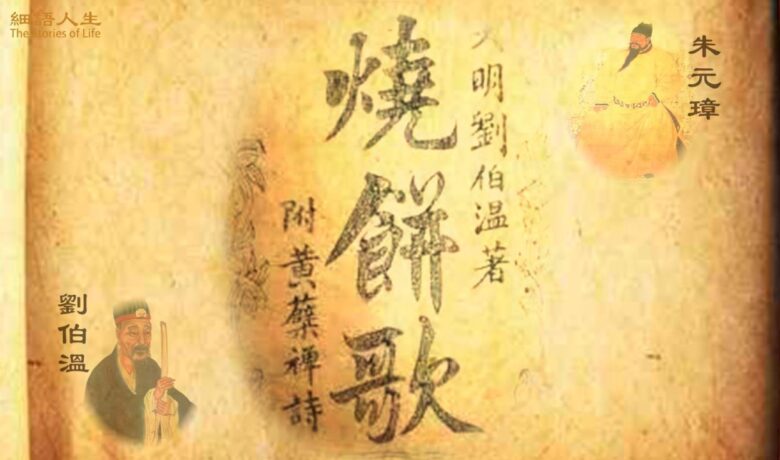 細語人生
The Stories of Life
朱元璋
大明劉伯溫著
燒餅歌
附黃蘗禪詩
劉伯溫